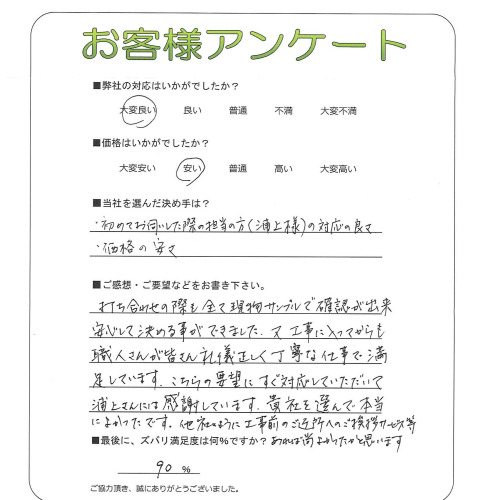 お客様アンケート
■弊社の対応はいかがでしたか?
大変良い 良い 普通 不満 大変不満
■価格はいかがでしたか?
大変安い 安い 普通 高い 大変高い
■当社を選んだ決め手は?
・初めてお伺いした際の担当の方(浦上様)の対応の良さ
・価格の安さ
■ご感想・ご要望などをお書き下さい。
打ち合わせの際も全て現物サンプルで確認が出来
安心して決める事ができました。又工事に入ってからも
職人さんが皆さん礼儀正しく丁寧な仕事で満
足しています。こちらの要望にすぐ対応していただいて
浦上さんには感謝しています。貴社を選んで本当
によかったです。他社のように工事前のご近所へのご挨拶サービス等
■最後に、ズバリ満足度は何%ですか? あれば尚よかったかと思います
90 %
ご協力頂き、誠にありがとうございました。